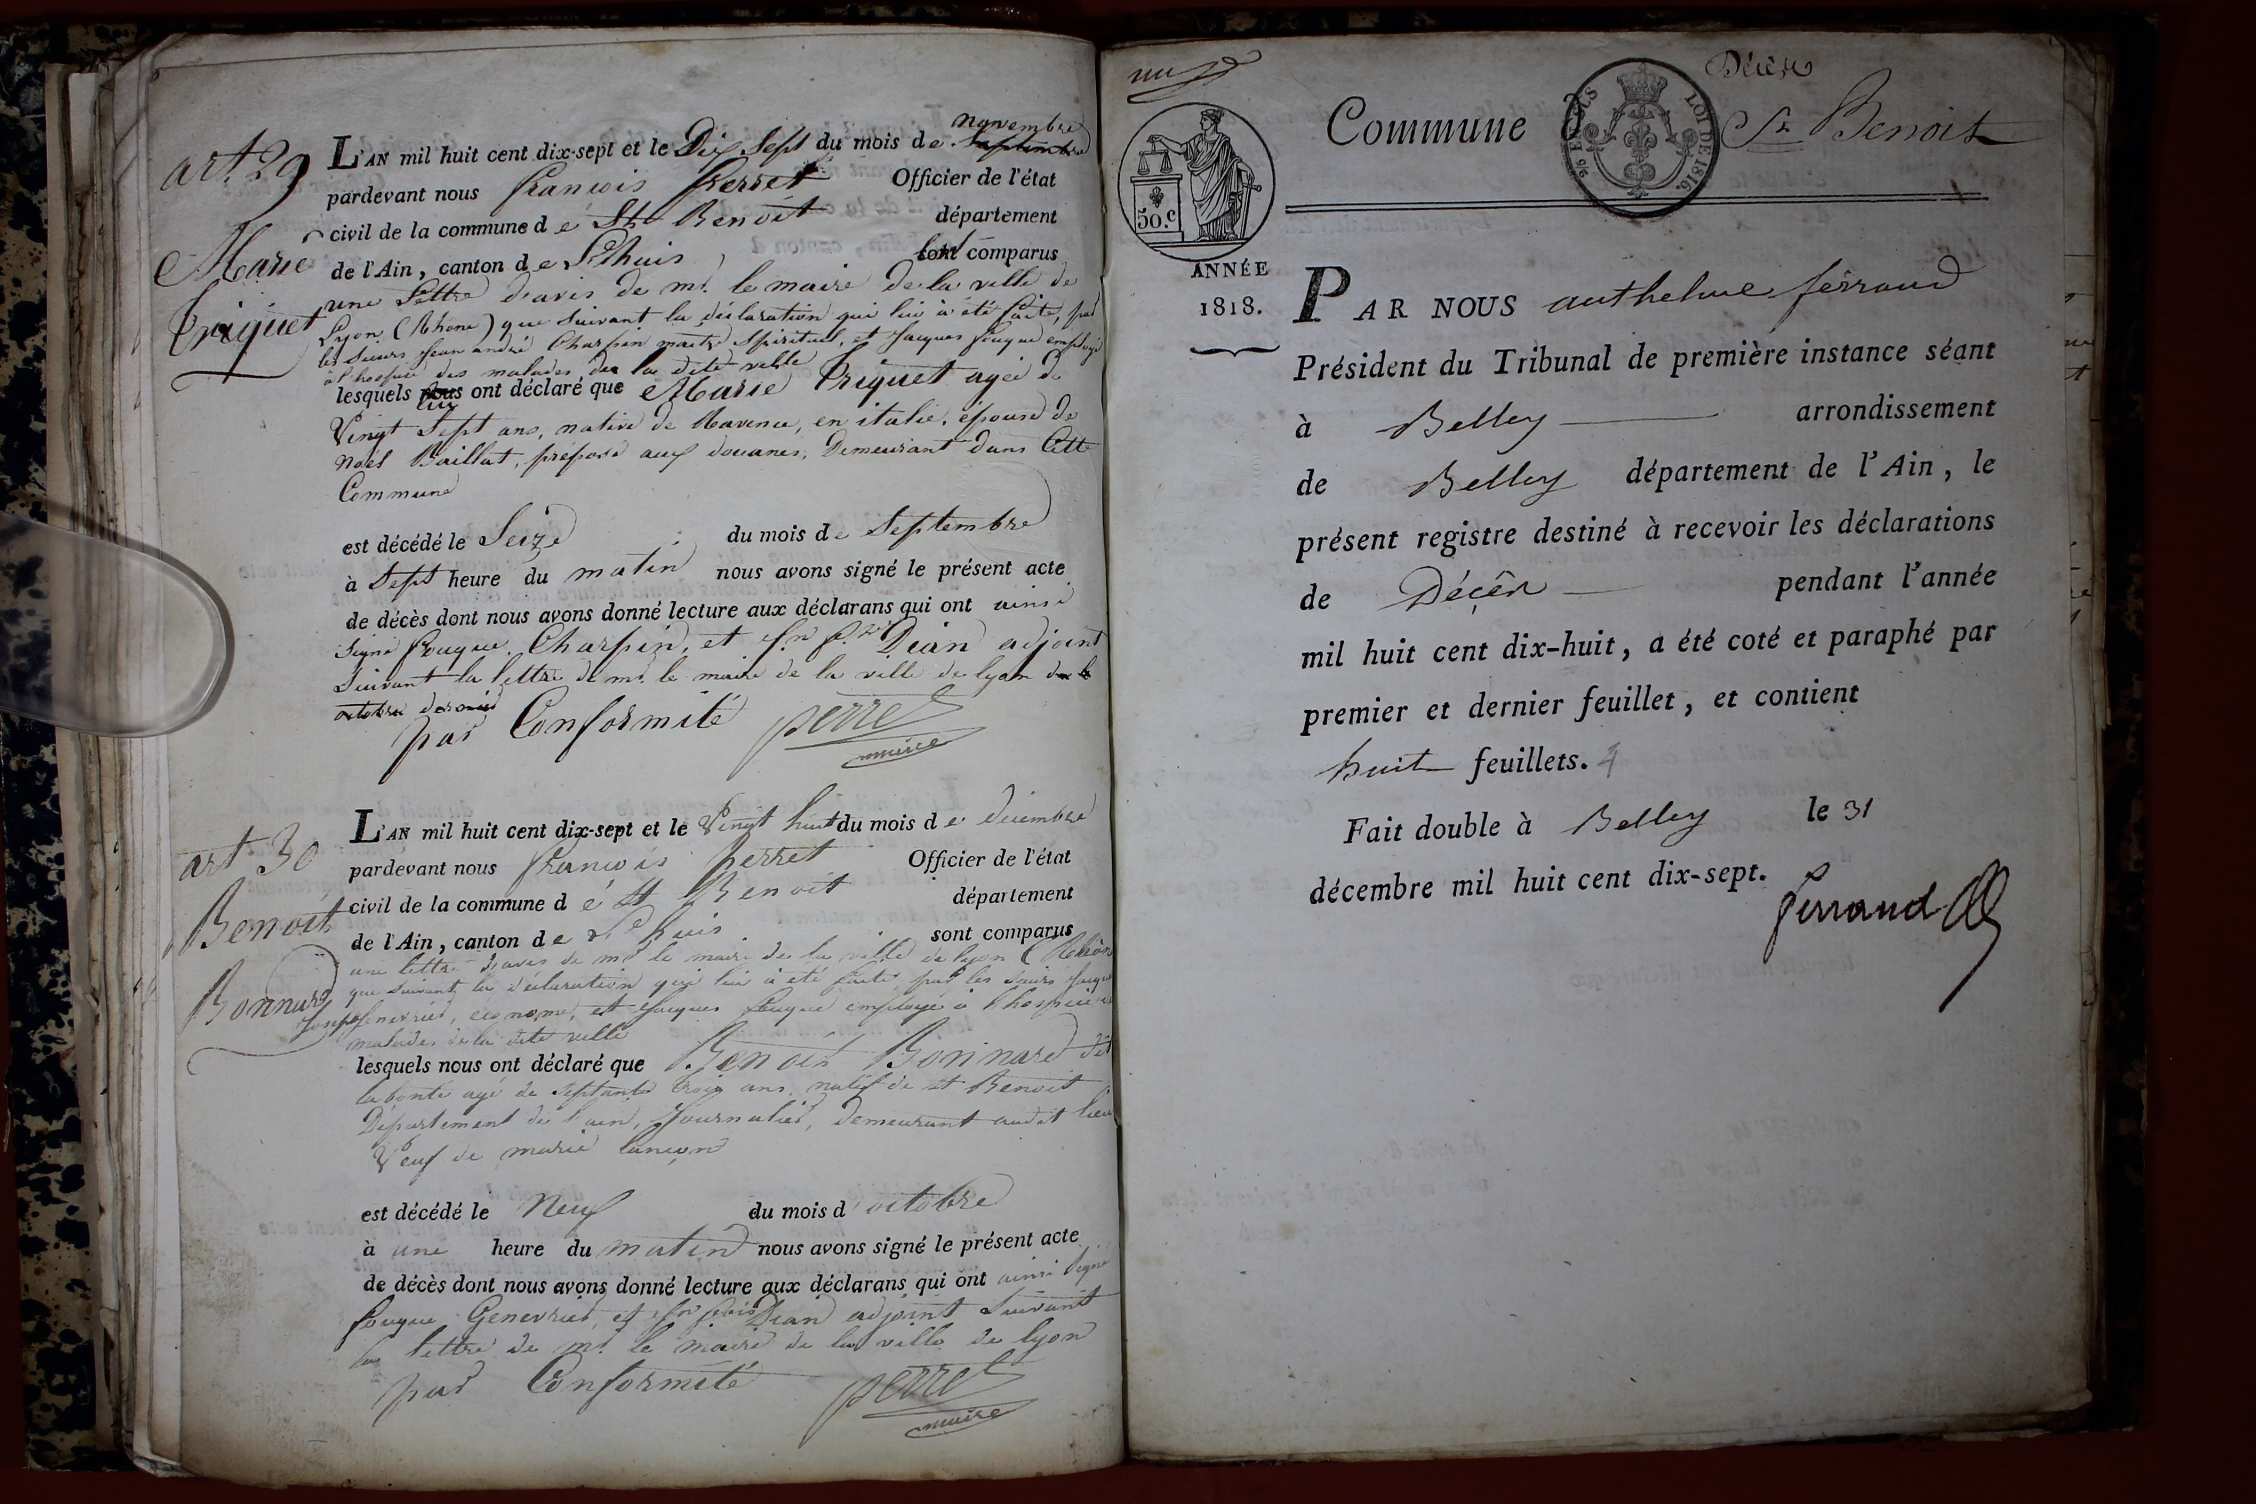 art. 29
Marie
Triquet
L'AN mil huit cent dix-sept et le Dix Sept du mois de septembre novembre
pardevant nous françois perret Officier de l'état
civil de la commune de St Benoit département
de l'Ain, canton de L'huis sont comparus
une Lettre d'avis de mr. le maire de la ville de
Lyon (Rhône) que suivant la déclaration qui lui a été faite, par
les Sieurs Jean andré Charpin maitre Spirituel, et Jacques fouque employé
à l'hospice des malades de la dite ville
lesquels nous lui ont déclaré que Marie Triquet agée de
Vingt Sept ans, native de en italie, épouse de
Noël Baillat, préposé aux douanes, Demeurant dans Cette
Commune
est décédé le Seize du mois de Septembre
à Sept heure du matin nous avons signé le présent acte
de décès dont nous avons donné lecture aux déclarans qui ont ainsi
Signé fouque, Charpin, et Dian adjoint
Suivant la lettre de mr. le maire de la ville de lyon
octobre dernier
par Conformité perret
maire
art 30
Benoit
Bonnard
L'AN mil huit cent dix-sept et le Vingt huit du mois de décembre
pardevant nous françois perret Officier de l'état
civil de la commune de St Benoit département
de l'Ain, canton de L'huis sont comparus
une lettre d'avis de mr le maire de la ville de lyon (Rhône
que suivant la déclaration qui lui a été faite par les Sieurs
Genevrier, économe, et Jacques fouque employé à l'hospice
malades de la dite ville
lesquels nous ont déclaré que Benoit Bonnard dit
labonté agé de Septante trois ans natif de st Benoit
Département de l'ain, Journalier, demeurant audit lieu
Veuf de marie lançon
est décédé le Neuf du mois d'octobre
à une heure du matin nous avons signé le présent acte
de décès dont nous avons donné lecture aux déclarans qui ont ainsi Signé
fouque Genevrier, et Dian adjoint Suivant
la lettre de mr. le maire de la ville de lyon
par Conformité perret
maire
Décès
Commune d St Benoit
50.c
96 ET
LOI DE 1816.
ANNÉE
1818.
PAR NOUS anthelme ferrand
Président du Tribunal de première instance séant
à Belley arrondissement
de Belley département de l'Ain, le
présent registre destiné à recevoir les déclarations
de Décès pendant l'année
mil huit cent dix-huit, a été coté et paraphé par
premier et dernier feuillet, et contient
huit feuillets. 4
Fait double à Belley le 31
décembre mil huit cent dix-sept.
ferrand